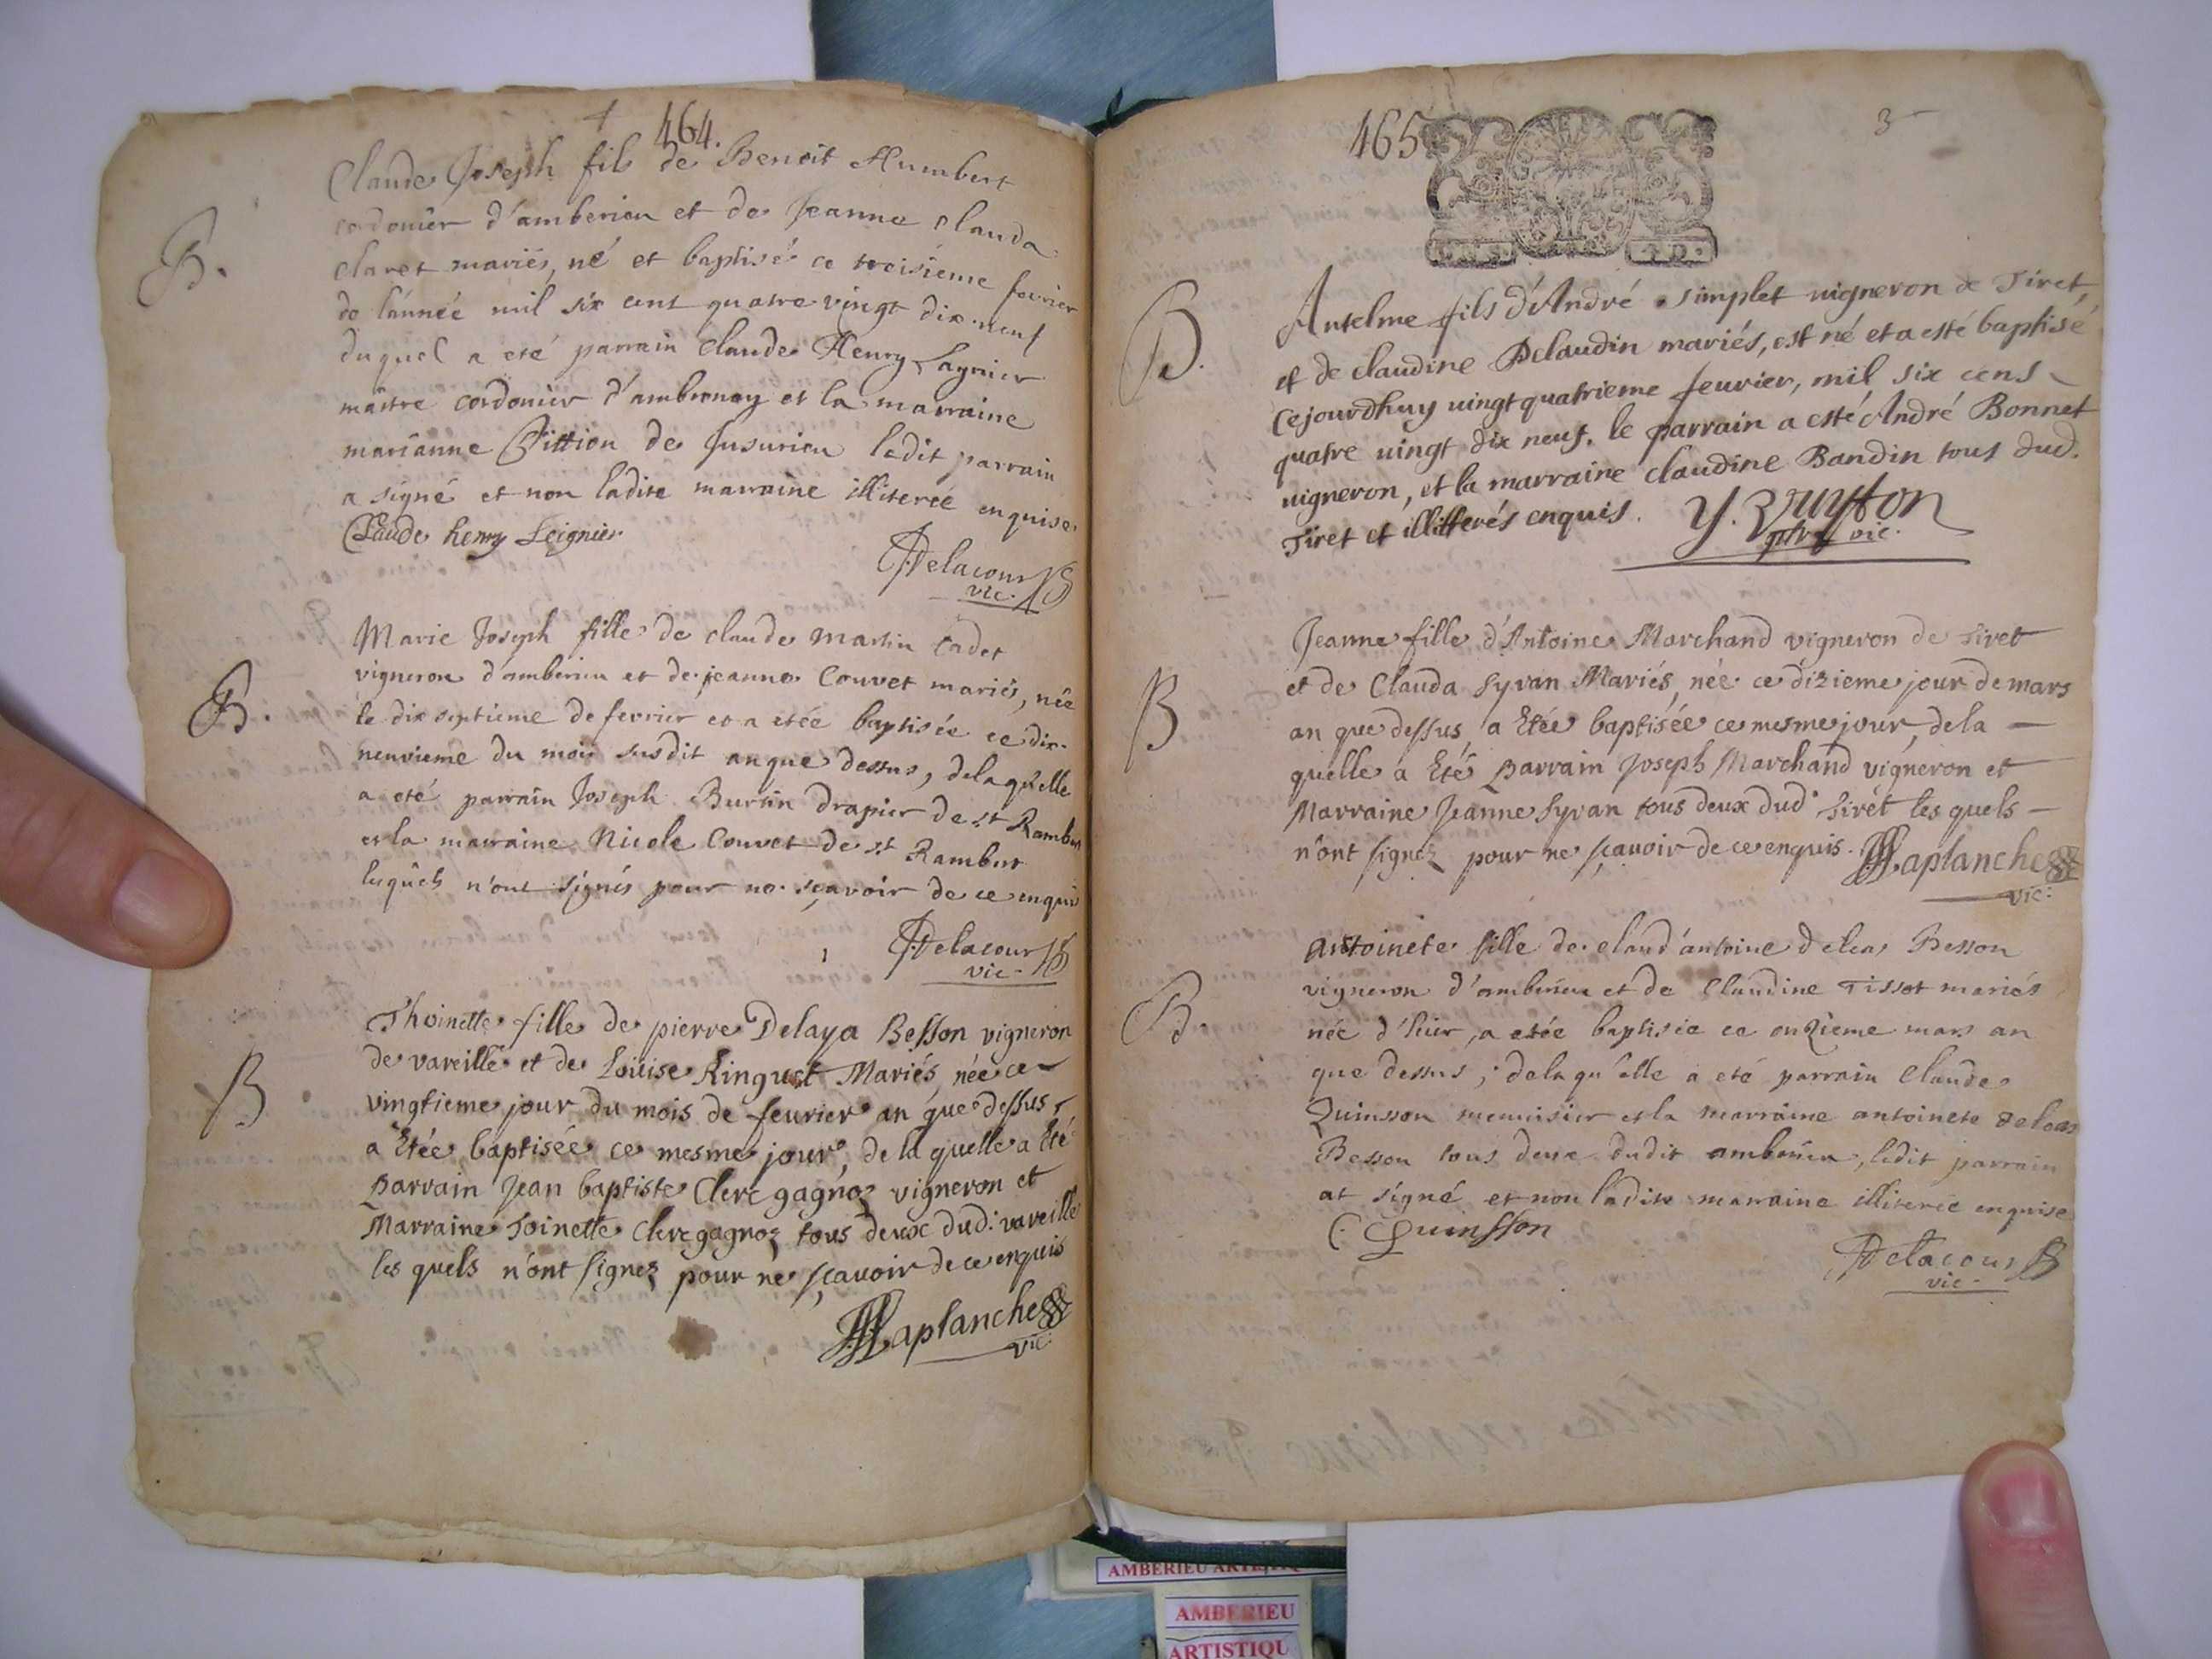 464.
B.
Claude Joseph fils de Benoit Humbert
cordonier d'amberieu et de Jeanne Clauda
Claret mariés, né et baptisé ce troisieme fevrier
de l'année mil six cent quatre vingt dix neuf
duquel a eté parrain Claude Henry Laynier
maître cordonier d'ambronay et la marraine
marianne Pittion de Jusurieu ledit parrain
a signé et non ladite marraine illiterée enquise
Claude henry Leignier
Delacour
vic.
B.
Marie Joseph fille de claude martin Cadet
vigneron d'amberieu et de jeanne Couvet mariés, née
le dix septieme de fevrier et a etée baptisée ce dix-
neuvieme du mois susdit an que dessus, delaquelle
a eté parrain Joseph Burtin drapier de st Rambert
et la marraine Nicole Couvet de st Rambert
lesquels n'ont signés pour ne sçavoir de ce enquis
Delacour
vic.
B
Thoinette fille de pierre Delaya Besson vigneron
de vareille et de Loüise Ringuet Mariés, née ce
vingtieme jour du mois de feurier an que dessus,
a Etée baptisée ce mesme jour, de la quelle a Eté
Parrain Jean baptiste Clerc gagnoz vigneron et
Marraine Toinette Clerc gagnoz tous deux dud. vareille
les quels n'ont signez pour ne sçauoir de ce enquis
Laplanche
vic.
465
3
B.
Anselme fils d'André simplet uigneron de Tiret,
et de claudine Delaudin mariés, est né et a esté baptisé
Cejourdhuy uingt quatrieme feurier, mil six cens
quatre uingt dix neuf. le parrain a esté André Bonnet
uigneron, et la marraine claudine Bandin tous dud.
Tiret et illitterés enquis.
vic.
B
Jeanne fille d'Antoine Marchand vigneron de Tiret
et de Clauda Syvan Mariés, née ce dizieme jour de mars
an que dessus a Etée baptisée ce mesme jour, de la
quelle a Eté Parrain Joseph Marchand vigneron et
Marraine Jeanne Syvan tous deux dud. Tiret les quels
n'ont signez pour ne sçauoir de ce enquis.
Laplanche
vic:
B.
Antoinete fille de claud'antoine delea Besson
vigneron d'amberieu et de Claudine Tissot mariés
née d'hier, a etée baptisée ce onzieme mars an
que dessus; delaqu'elle a eté parrain Claude
Quinsson menuisier et la marraine antoinete delea
Besson tous deux dudit amberieu, ledit parrain
at signé et non ladite marraine illiterée enquise
C. Quinsson
Delacour
vic.
AMBERIEU
AMBERIEU
ARTISTIQU